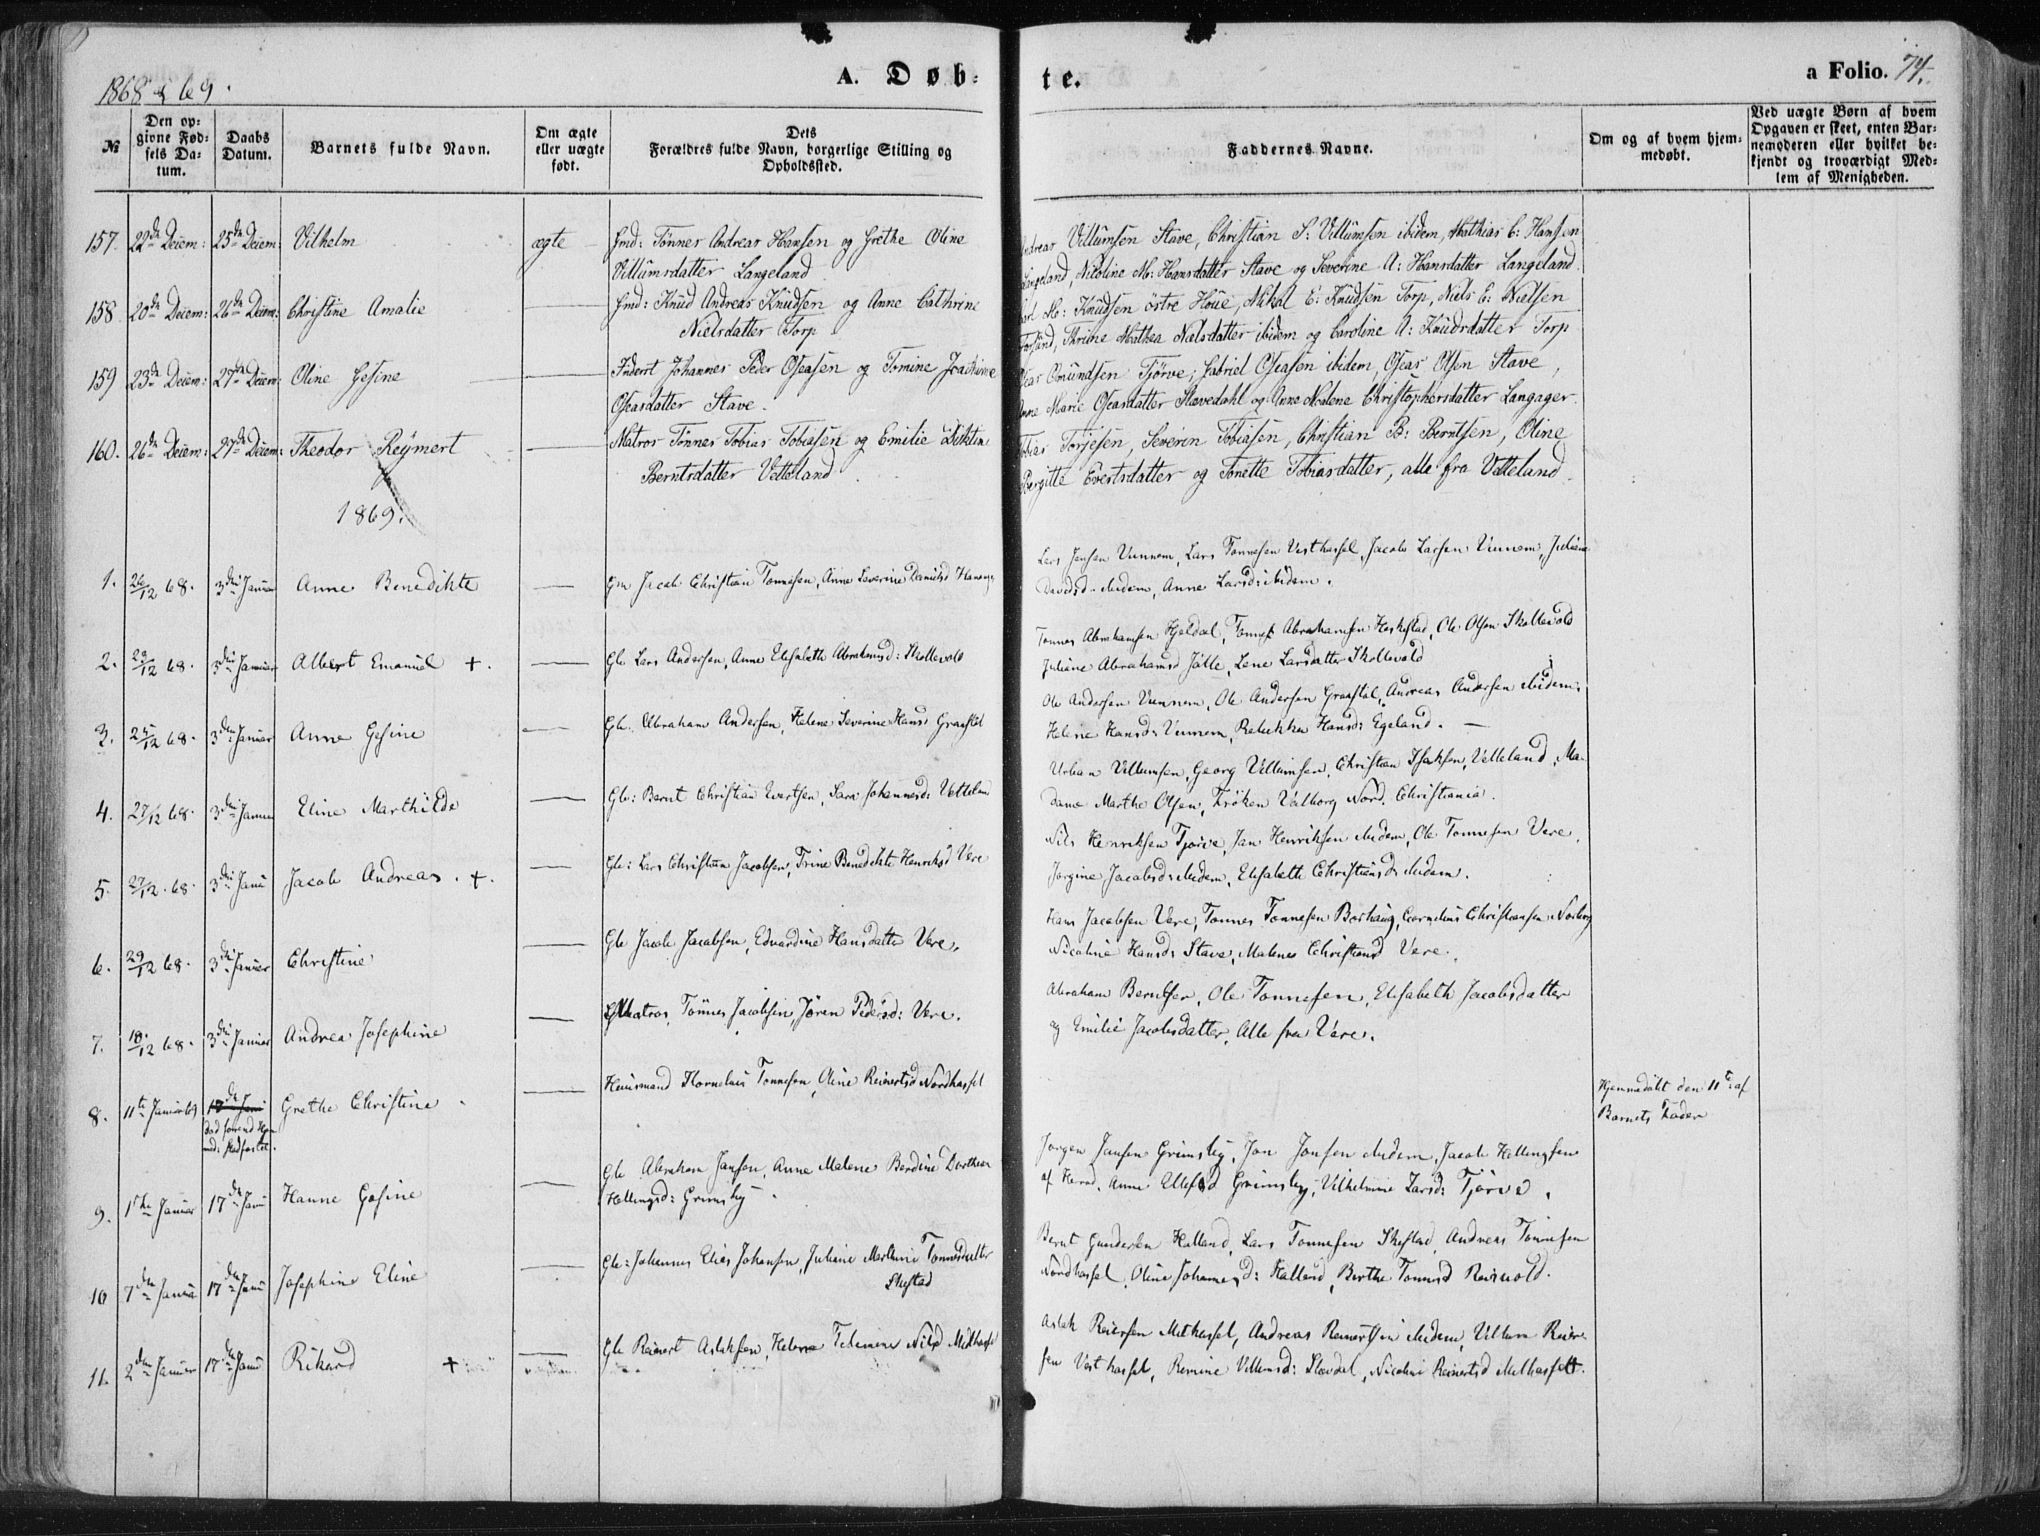 1868 & 69.
A. Døb-
te.
a Folio. 74.
№
Den opgivne Fødsels Datum.
Daabs Datum.
Barnets fulde Navn.
Om ægte eller uægte født.
Dets Forældres fulde Navn, borgerlige Stilling og Opholdssted.
Faddernes Navne.
Om og af hvem hjemmedøbt.
Ved uægte Børn af hvem Opgaven er skeet, enten Barnemoderen eller hvilket bekjendt og troværdigt Medlem af Menigheden.
157. 22de Decem: 25de Decem: Vilhelm ægte Gmd: Tønnes Andreas Hansen og Grethe Oline
Villumsdatter Langeland
Andreas Villumsen Stave, Christian S: Villumsen ibidem, Mathias C: Hansen
Langeland, Nicoline M: Hansdatter Stave og Severine A: Hansdatter Langeland.
158 20de Decem: 26de Decem: Christine Amalie Gmd: Knud Andreas Knudsen og Anne Cathrine
Nielsdatter Torp
M: Knudsen östre Houe, Mikal E: Knudsen Torp, Niels E: Nielsen
Mathea Nielsdatter ibidem og Caroline A: Knudsdatter Torp
159 23de Decem: 27de Decem: Oline Gesine Inderst Johannes Peder Oseasen og Tomine Joachime
Oseasdatter Stave.
Oseas Omundsen Tjörve, Gabriel Oseasen ibidem, Oseas Olsen Stave,
Anne Marie Oseasdatter Stavedahl og Anne Malene Christophersdatter Langager.
160. 26de Decem: 27de Decem: Theodor Reymert Matros Tönnes Tobias Tobiasen og Emilie
Berntsdatter Vetteland
Tobias Torjesen, Severin Tobiasen, Christian B: Berntsen, Oline
Bergitte Evertsdatter og Tonette Tobiasdatter, alle fra Vetteland
1869.
1. 26/12 68. 3die Januar Anne Benedikte Gm Jacob Christian Tönnesen, Anne Severine Danielsd
Lars Jensen Vunnem, Lars Tönnesen Vesthassel, Jacob Larsen Vunnem, Juliane
Davidsd. ibidem, Anne Larsd: ibidem.
2. 29/12 68. 3die Januar Albert Emanuel +. Gb Lars Andersen, Anne Elisabeth Abrahamsd: Skollevold
Tönnes Abrahamsen Hjeldal, Abrahamsen Heskestad, Ole Olsen Skollevold
Juliane Abrahamsd Jölle, Lene Larsdatter Skollevold
3. 25/12 68. 3die Januar Anne Gesine Gb. Abraham Andersen, Helene Severine Hansd Graastöl
Ole Andersen Vunnem, Ole Andersen Graastöl, Andreas Andersen ibidem
Helene Hansd: Vunnem, Rebekka Hansd: Egeland.
4. 27/12 68. 3die Januar Eline Marthilde Gb: Bernt Christian Evertsen, Sara Johannesd: Vetteland
Urban Villumsen, Georg Villumsen, Christian Isaksen, Velleland, Ma-
dame Marthe Olsen, Fröken Valborg Nord, Christiania.
5. 27/12. 68. 3die Janu Jacob Andreas. +. Gb: Lars Christian Jacobsen, Trine Benedikte Henriksd Vere
Nils Henriksen Tjörve, Jan Henriksen ibidem, Ole Tönnesen Vere,
Jorgine Jacobsd: ibidem, Elisabeth Christiansd: ibidem.
6. 29/12 68. 3die Januar Christine Gb Jacob Jacobsen, Edvardine Hansdatter Vere.
Hans Jacobsen Vere, Tönnes Tönnesen Borhaug, Cornelius Christiansen
Nicoline Hansd: Stave, Malene Christiansd Vere.
7. 18/12 68. 3die Januar Andrea Josephine Matros, Tönnes Jacobsen, Jören Pedersd: Vere.
Abraham Berntsen, Ole Tönnesen, Elisabeth Jacobsdatter
og Emilie Jacobsdatter, Alle fra Vere.
8. 11te Januar 69 Grethe Christine Huusmand Kornelius Tönnesen, Oline Reinertsd Nordhassel
Hjemmedöbt den 11te af
Barnets Fader
9. 1ste Januar 17de Janu Hanne Gesine Gb Abraham Jansen, Anne Malene Berdine Dorthea
Hellingsd: Grimsby.
Jorgen Jansen Grimsby, Jon Jonsen ibidem, Jacob Hellingsen
af Herad, Anne Ellefsd Grimsby, Vilhelmine Larsd: Tjörve.
10 7de Januar 17de Janu Josephine Eline Gb: Johannes Elias Johansen, Juliane Marthine Tönnesdatter
Skjstad
Bernt Gundersen Halland, Lars Tönnesen Skjstad, Andreas Tönnesen
Nordhassel, Oline Johannesd: Halland, Berthe Tönnesd Reisvold.
11. 2den Januar 17de Janu Rikard + Gb Reinert Aslaksen, Helene Nilsd Midhassel
Aslak Reiersen Midhassel, Andreas Reinertsen ibidem, Villum Reier-
sen Vesthassel, Remine Villumsd: Slevdal, Nicoline Reinertsd Midhassel.